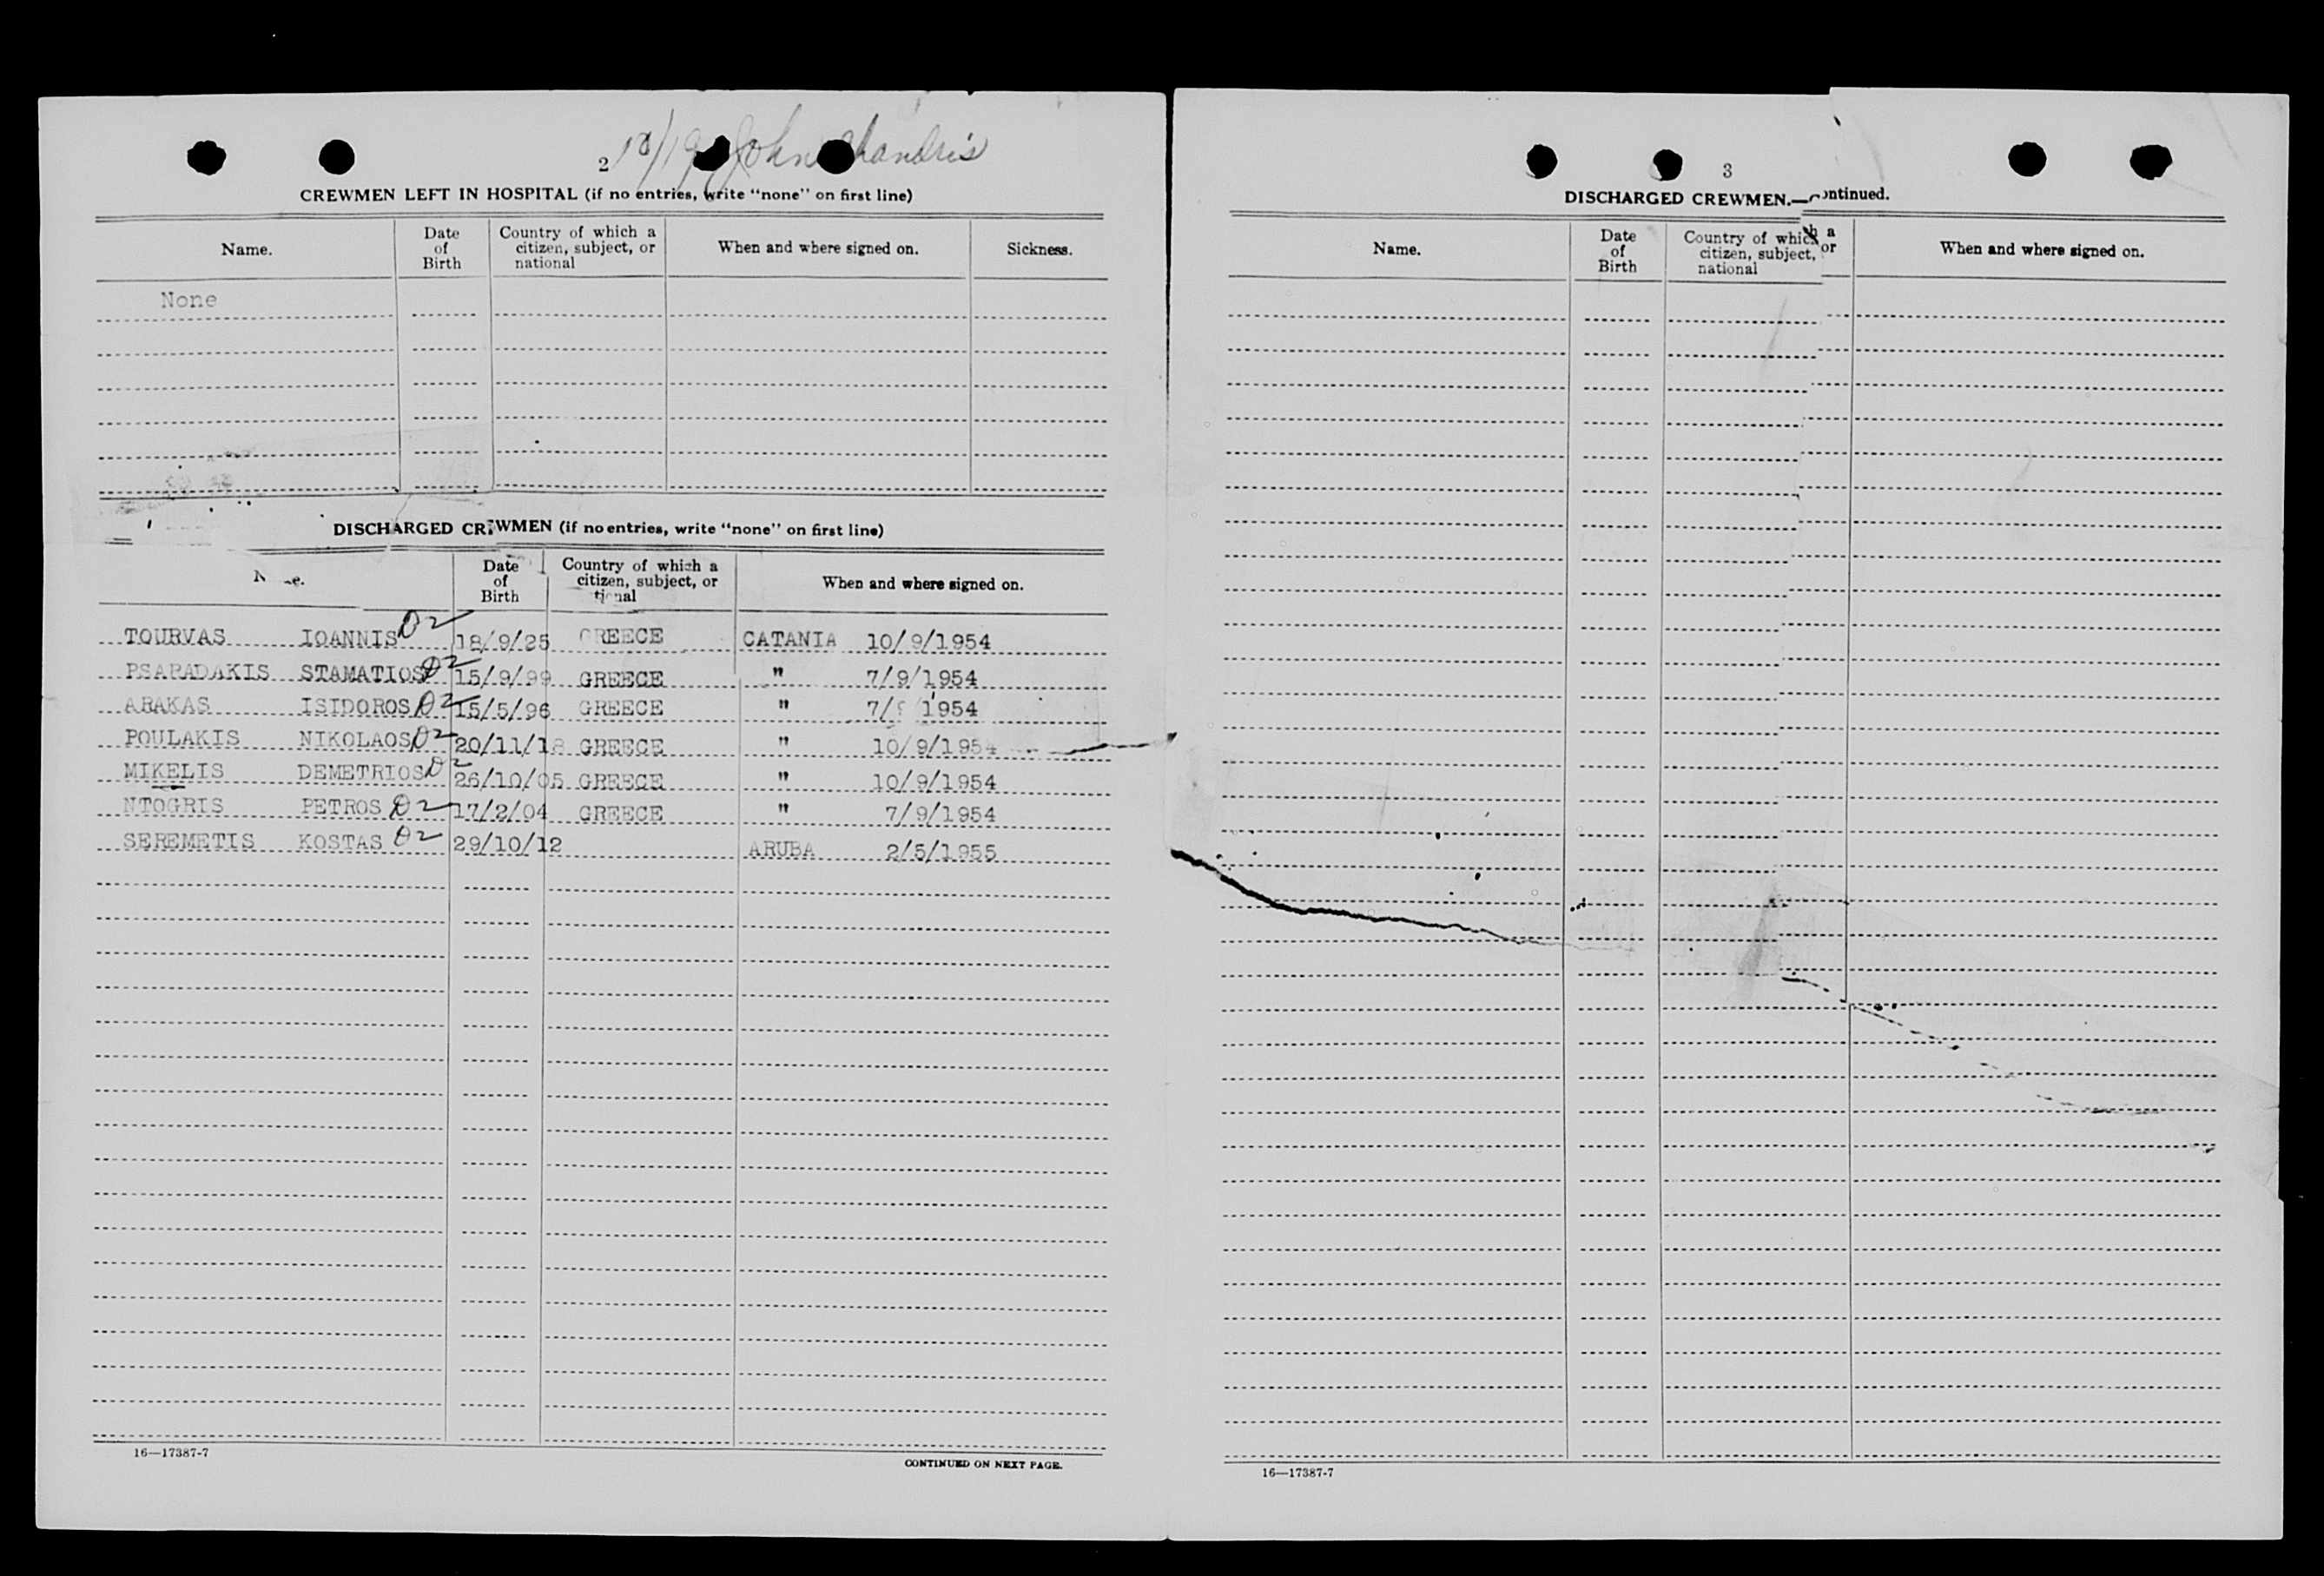 2 John Chandris
CREWMEN LEFT IN HOSPITAL (if no entries, write "none" on first line)
Name. Date of Birth Country of which a citizen, subject, or national When and where signed on. Sickness.
None
DISCHARGED CREWMEN (if no entries, write "none" on first line)
N e. Date of Birth Country of which a citizen, subject, or tional When and where signed on.
TOURVAS IOANNIS D2 18/9/25 GREECE CATANIA 10/9/1954
PSARADAKIS STAMATIOS D2 15/9/99 GREECE " 7/9/1954
ARAKAS ISIDOROS D2 15/5/96 GREECE " 7/9 1954
POULAKIS NIKOLAOS D2 20/11/18 GREECE " 10/9/1954
MIKELIS DEMETRIOS D2 26/10/05 GREECE " 10/9/1954
NTOGRIS PETROS D2 17/2/04 GREECE " 7/9/1954
SEREMETIS KOSTAS D2 29/10/12 ARUBA 2/5/1955
16—17387-7
CONTINUED ON NEXT PAGE.
3
DISCHARGED CREWMEN.—Continued.
Name. Date of Birth Country of which a citizen, subject, or national When and where signed on.
16—17387-7